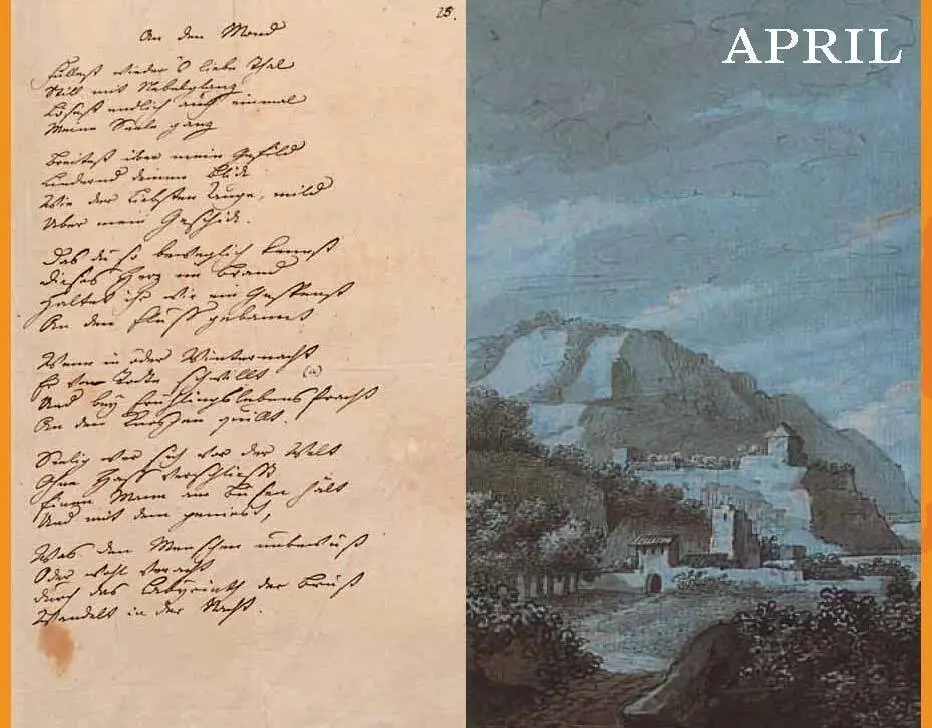 28.
An den Mond
Füllest wieder's liebe Thal
Still mit Nebelglanz
Lösest endlich auch einmal
Meine Seele ganz
Breitest über mein Gefild
Lindernd deinen Blick
Wie der Liebsten Auge, mild
Über mein Geschick.
Das du so beweglich kennst
Dieses Herz im Brand
Haltet ihr wie ein Gespenst
An den Fluß gebannt
Wenn in öder Winternacht
Er vom Todte schwillt
Und bey Frühlingslebens Pracht
An den Knospen quillt.
Seelig wer sich vor der Welt
Ohne Haß verschließt
Einen Mann am Busen hält
Und mit dem genießt,
Was den Menschen unbewust
Oder wohl veracht
durch das Labyrinth der Brust
Wandelt in der Nacht.
APRIL